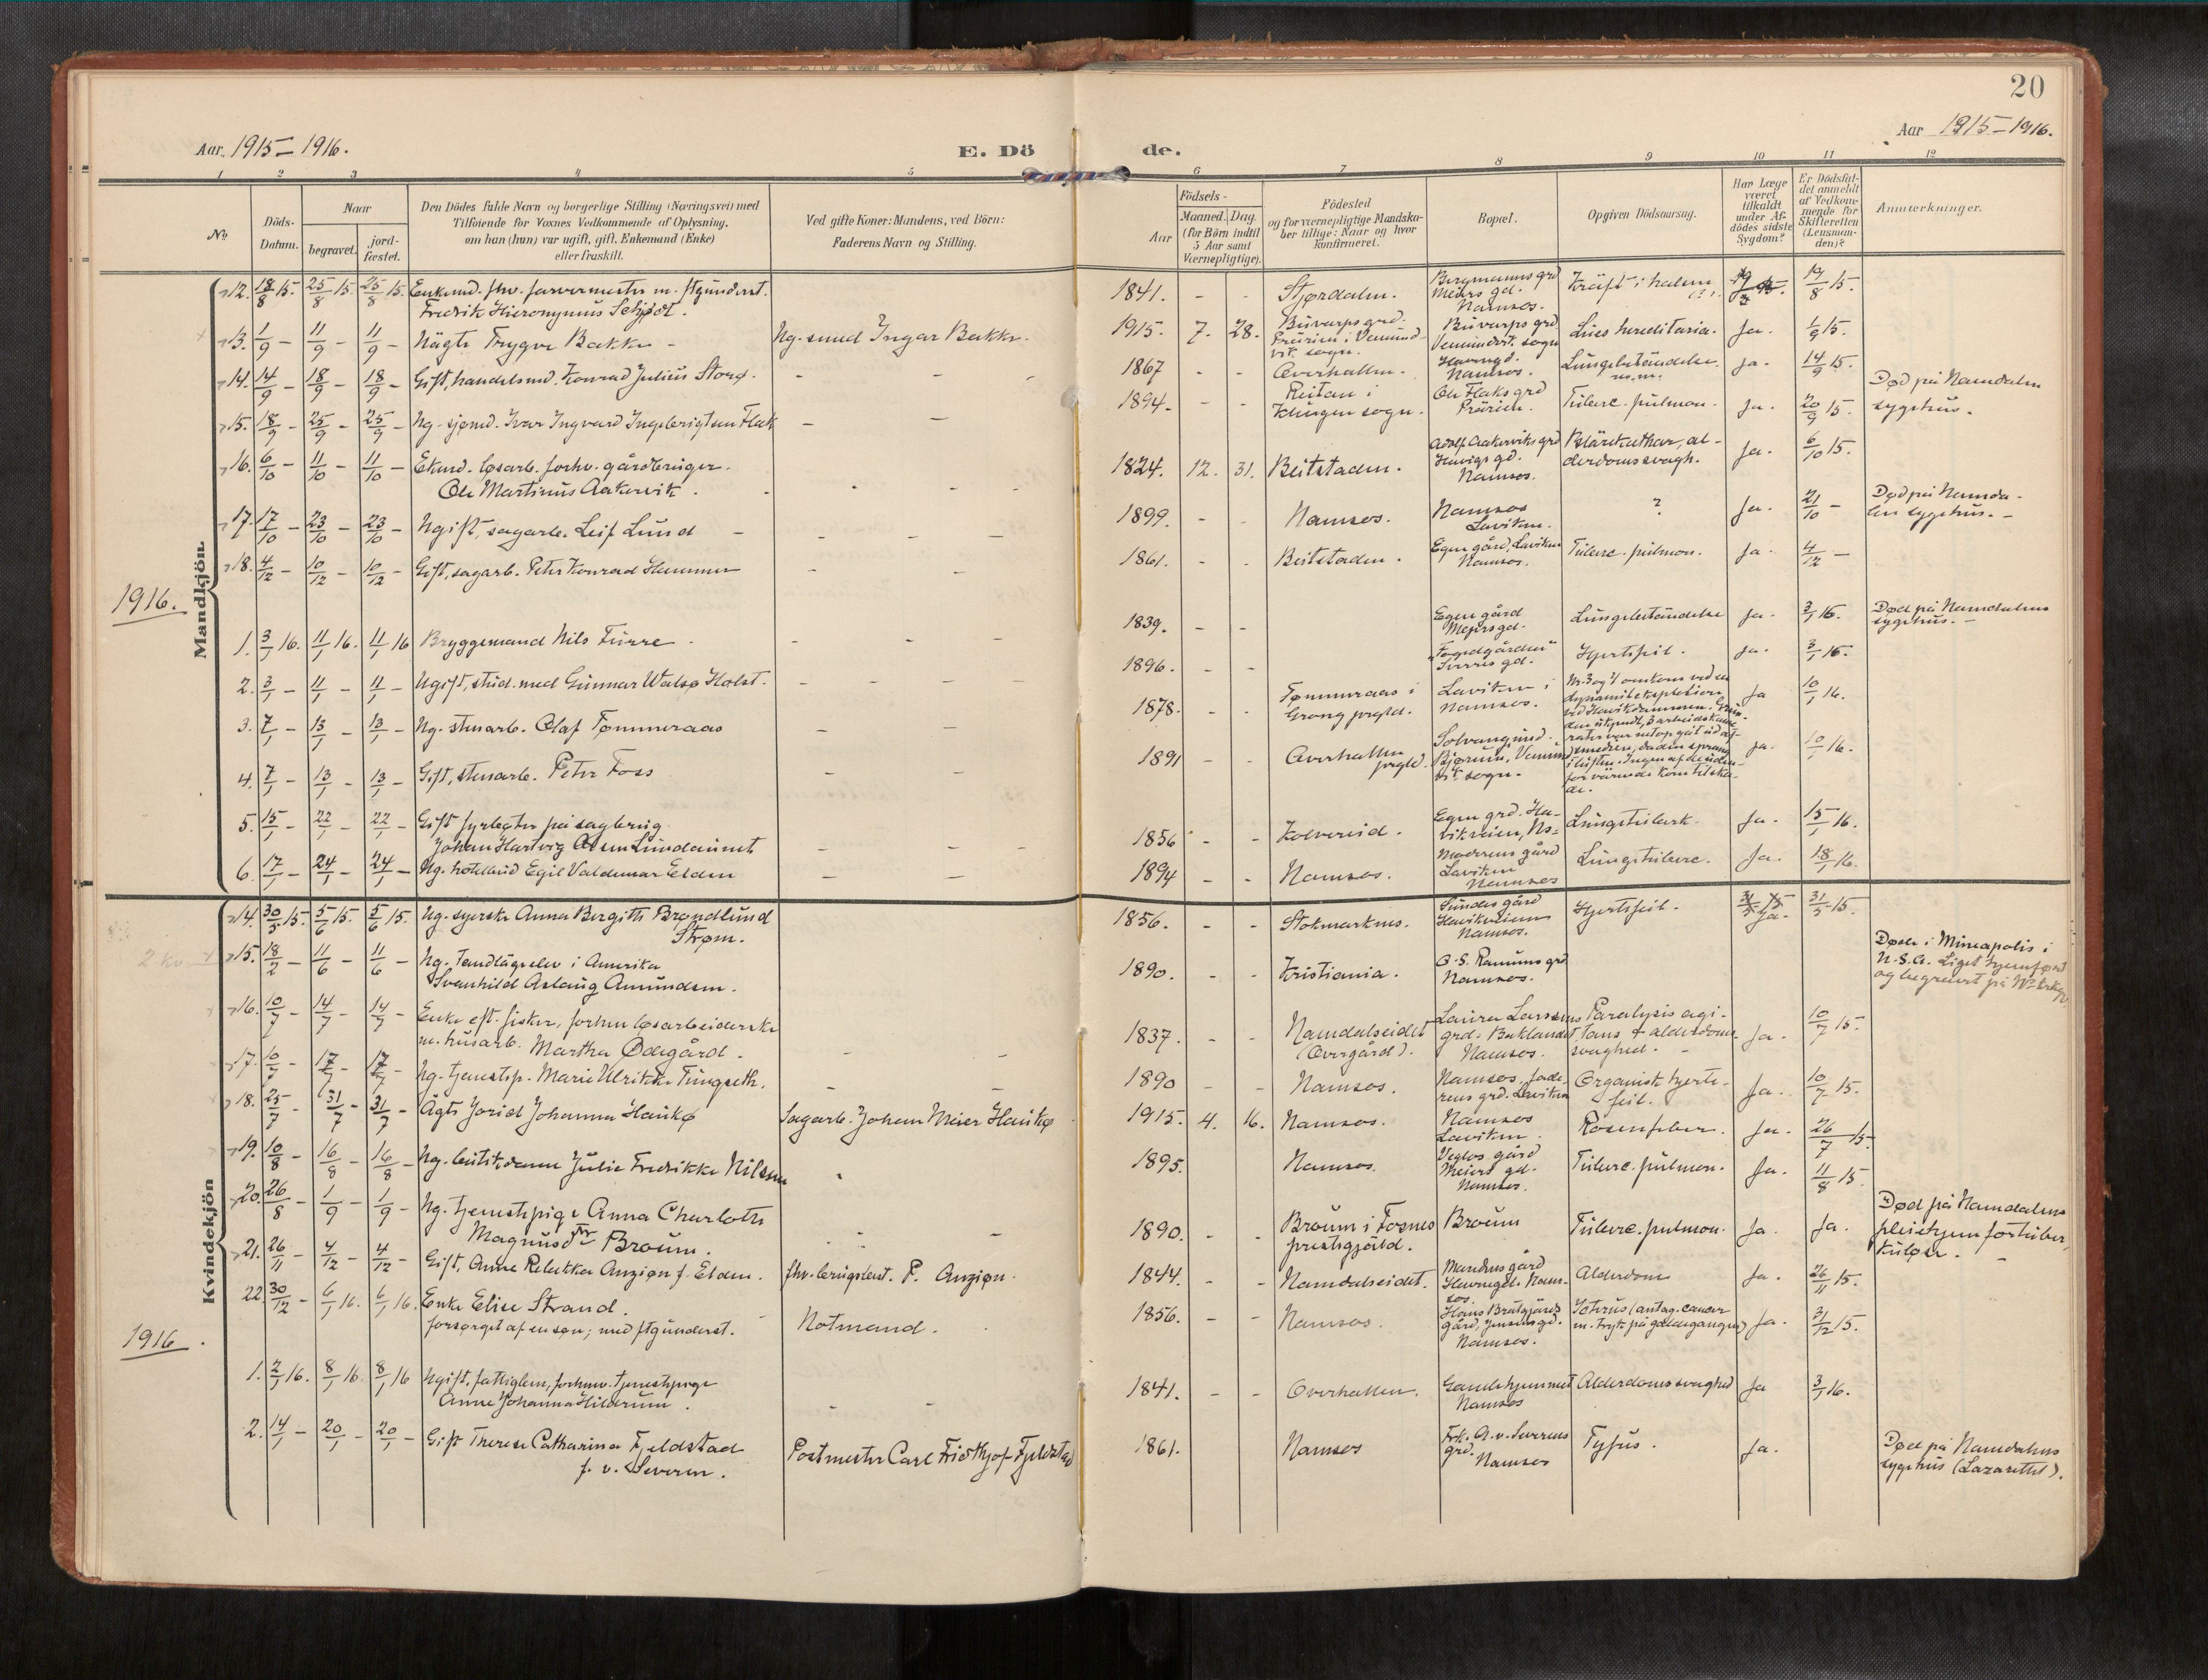 20
Aar 1915-1916.
E. Dö
de.
Aar 1915-1916.
1 2 3 4 5 6 7 8 9 10 11 12
No
Döds-Datum.
Naar
begravet.
jord-fæstet.
Den Dödes fulde Navn og borgerlige Stilling (Næringsvei) med
Tilföiende for Voxnes Vedkommende af Oplysning,
om han (hun) var ugift, gift, Enkemand (Enke)
eller fraskilt.
Ved gifte Koner: Mandens, ved Börn:
Faderens Navn og Stilling.
Födsels-
Aar
Maaned. Dag.
(for Börn indtil
5 Aar samt
Værnepligtige).
Födested
og for værnepligtige Mandska-
ber tillige: Naar og hvor
konfirmeret.
Bopæl.
Opgiven Dödsaarsag.
Har Læge
været
tilkaldt
under Af-
dödes sidste
Sygdom?
Er Dödsfal-
det anmeldt
af Vedkom-
mende for
Skifteretten
(Lensman-
den)?
Anmærkninger.
Mandkjön
12. 18/8 15. 25/8 15. 25/8 15. Enkemd. fhv. farvermester m. ftgunderst.
Fredrik Hieronymus Schjødt.
1841. - - Stjørdalen. Bergmanns grd
Meiers gd.
Namsos. Kräft i halsen 19/8 15.
13. 1/9 - 11/9 - 11/9 - Uägte Trygve Bakken - Ug. smed Ingar Bakken. 1915. 7. 28. Buvarps grd.
Prärien i Vemund-
vik sogn. Buvarps grd
Vemundvik sogn Lues hereditaria. Ja. 1/9 15.
14. 14/9 - 18/9 - 18/9 - Gift, handelsmd. Konrad Julius Storø. - - 1867 - - Overhallen. Havnegd.
Namsos. Lungebetändelse
m.m. Ja. 14/9 15.
15. 18/9 - 25/9 - 25/9 - Ug. sjømd. Ivar Ingvard Ingebrigtsen Flak - - 1894. - - Reitan i
Klingen sogn. Ole Flaks grd
Prärien. Tuberc. pulmon. Ja. 20/9 15. Død på Namdalen
sygehus.
16. 6/10 - 11/10 - 11/10 - Ekmd. løsarb. forhv. gårdbruger.
Ole Martinus Aakervik. 1824. 12. 31. Beitstaden. Adolf Aakerviks grd
Havigs gd.
Namsos. Blärekathar, al-
derdomssvagh. Ja. 6/10 15.
17. 17/10 - 23/10 - 23/10 - Ugift, sagarb. Leif Lund - 1899. - - Namsos. Namsos
Laviken. ? Ja. 21/10 - Død på Namda-
len sygehus. -
18. 4/12 - 10/12 - 10/12 - Gift, sagarb. Peter Konrad Hammer - - 1861. - - Beitstaden. Egen gård, Laviken
Namsos. Tuberc. pulmon. Ja. 4/12 -
1916.
1. 3/1 16. 11/1 16. 11/1 16 Bryggemand Nils Furre - - 1839. - - Egen gård
Meiers gd. Lungebetändelse Ja. 3/1 16. Død på Namdalens
sygehus. -
2. 3/1 - 11/1 - 11/1 - Ugift, stud. med Gunnar Walsø Holst. - - 1896. - - "Fogedgården"
Sverres gd. Hjertefeil. Ja. 3/1 16.
3. 7/1 - 13/1 - 13/1 - Ug. stenarb. Olaf Tømmeraas - - 1878. - - Tømmeraas i
Grong prgld. Laviken i
Namsos. Nr. 3 og 4 omkom ved en
dynamiteksplosion
ved Havikdammen. Ja 10/1 16.
4. 7/1 - 13/1 - 13/1 - Gift, stenarb. Peter Foss - - 1891 - - Overhallen
prgld. Bjørum, Vemund-
vik sogn. Ja. 10/1 16.
5. 15/1 - 22/1 - 22/1 - Gift fyrbøter på sagbrug
Johan Hartvig Olsen Lundaunet - - 1856 - - Kolvereid. Egen grd. Ha-
vikveien, Ns. Lungetuberk. Ja. 15/1 16.
6. 17/1 - 24/1 - 24/1 - Ug. hotelbud Egil Valdemar Elden - - 1894 - - Namsos. Moderens gård
Laviken
Namsos Lungetuberc. Ja. 18/1 16.
Kvindekjön
14. 30/5 15. 5/6 15. 5/6 15. Ug. syerske Anna Bergitte Brøndlund
Strøm. 1856. - - Stokmarknes. Sundes gård
Havikveien
Namsos. Hjertefeil. Ja. 31/5 15.
2 kv
15. 18/2 - 11/6 - 11/6 - Ug. Tandlägeelev i Amerika
Svanhild Aslaug Amundsen. 1890. - - Kristiania. O. S. Ranums grd
Namsos. Døde i Mineapolis i
U.S.A. Liget hjemført
og begravet på Ns kirkeg.
16. 10/7 - 14/7 - 14/7 - Enke eft. fisker, forhen løsarbeiderske
m. husarb. Martha Ødegård. - - 1837. - - Namdalseidet
(Overgård). Laura Larsens
grd. Baklandet
Namsos. Paralysis agi-
tans & alderdoms-
svaghed. - Ja. 10/7 15.
17. 10/7 - 17/7 - 17/7 - Ug. tjenestep. Marie Ulrikke Tingseth. - - 1890 - - Namsos. Namsos, fade-
rens grd. Laviken Organisk hjerte-
feil. Ja. 10/7 15.
18. 25/7 - 31/7 - 31/7 - Ägte Jorid Johanna Haukø Sagarb. Johan Meier Haukø 1915. 4. 16. Namsos. Namsos
Laviken. Rosenfeber. Ja. 26/7 15.
19. 10/8 - 16/8 - 16/8 - Ug. butikdame Julie Fredrikke Nilsen 1895. Namsos. Veglos gård
Meiers gd.
Namsos. Tuberc. pulmon. Ja. 11/8 15.
20. 26/8 - 1/9 - 1/9 - Ug. tjenestepige Anna Charlotte
Magnusdtr Broum. - - 1890. - - Broum i Fosnes
prestegjäld. Broum Tuberc. pulmon. Ja. Ja. Død på Namdalens
pleiehjem for tuber-
kuløse. -
21. 26/11 - 4/12 - 4/12 - Gift, Anne Rebekka Anziøn f. Elden. fhv. brugsbest. P. Anziøn. 1844. - - Namdalseidet. gård
Havnegd. Nam-
sos Alderdom Ja. 26/11 15.
22. 30/12 - 6/1 16. 6/1 16. Enke Elise Strand.
forsørget af en søn; med ftgunderst. Notmand. 1856. - - Namsos. Hans Bråtgjärds
gård, Jensens gd.
Namsos. Icterus (antag. cancer
m. tryk på galdegangen) Ja. 31/12 15.
1916.
1. 2/1 16. 8/1 16. 8/1 16 Ugift, fattiglem, forhenv. tjenestepige
Anne Johanna Hildrum. - - 1841. - - Overhallen. Gamlehjemmet
Namsos Alderdomssvaghed Ja 3/1 16.
2. 14/1 - 20/1 - 20/1 - Gift Therese Catharina Fjeldstad
f. v. Severen. Postmester Carl Fridthjof Fjeldstad 1861. Namsos Frk. A. v. Severens
grd.
Namsos Tyfus. Ja. Død på Namdalens
sygehus (Lazarettet).